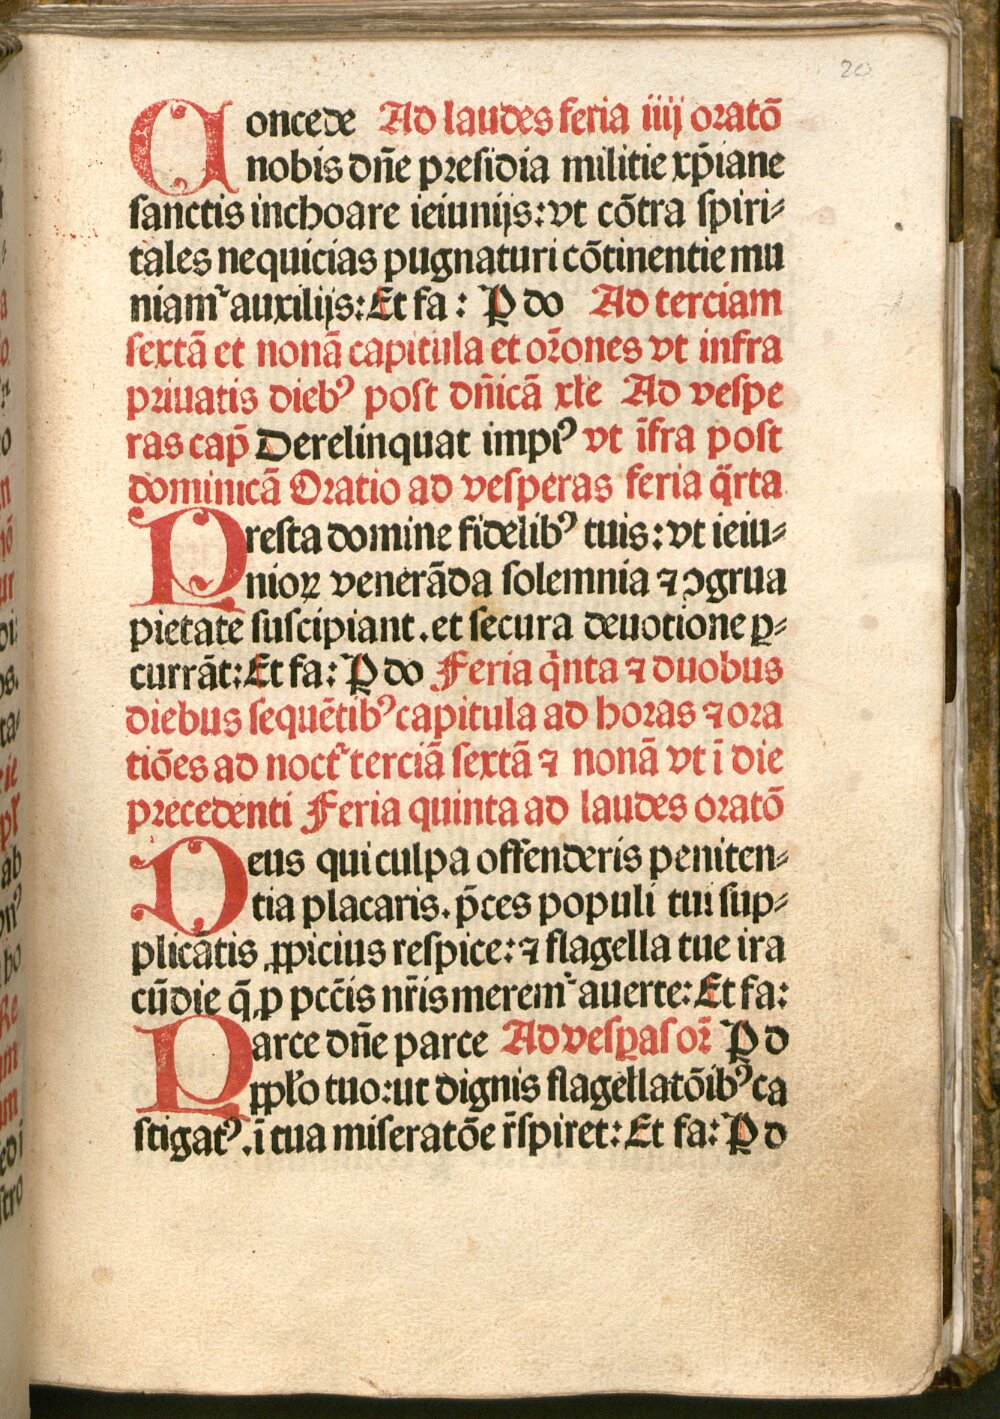 20
Concede Ad laudes feria iiij oratō
nobis dn̄e presidia militie xp̄iane
sanctis inchoare ieiunijs: vt cōtra spiri⸗
tales nequicias pugnaturi cōtinentie mu
niamˀ auxilijs: Et fa: P do Ad terciam
sextā et nonā capitula et or̄ones vt infra
priuatis diebꝰ post dn̄icā xl̄e Ad vespe
ras cap̄ Derelinquat impiꝰ vt īfra post
dominicā Oratio ad vesperas feria q̈rta
Presta domine fidelibꝰ tuis: vt ieiu⸗
nioꝝ venerāda solemnia ⁊ ꝯgrua
pietate suscipiant. et secura deuotione ꝑ⸗
currāt: Et fa: P do Feria q̇nta ⁊ duobus
diebus sequētibꝰ capitula ad horas ⁊ ora
tiōes ad noctˀ terciā sextā ⁊ nonā vt ī die
precedenti Feria quinta ad laudes oratō
Deus qui culpa offenderis peniten⸗
tia placaris. p̄ces populi tui sup⸗
plicātis ꝓpicius respice: ⁊ flagella tue ira
cūdie q̄ ꝓ pcc̄is nr̄is meremˀ auerte: Et fa:
Parce dn̄e parce Ad vesꝑas or̄ P d
ppl̄o tuo: ut dignis flagellatōibꝰ ca
stigatꝰ. ī tua miseratōe r̄spiret: Et fa: P d